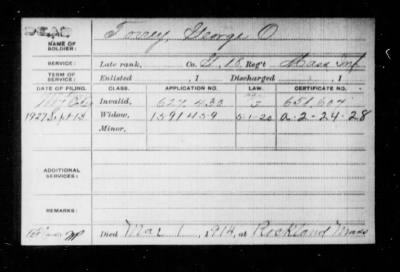 DEAD
NAME OF SOLDIER: Torrey, George O.
SERVICE: Late rank, Co. G, 18, Reg't Mass Inf
TERM OF SERVICE: Enlisted , 1 Discharged , 1
DATE OF FILING. CLASS. APPLICATION NO. LAW. CERTIFICATE NO.
Invalid, 627,433 651,604
1927 Sept 13 Widow, 1591459 5-1-20 a-2-24-28
Minor,
ADDITIONAL SERVICES:
REMARKS:
Died Mar 1, 1914, at Rockland Mass